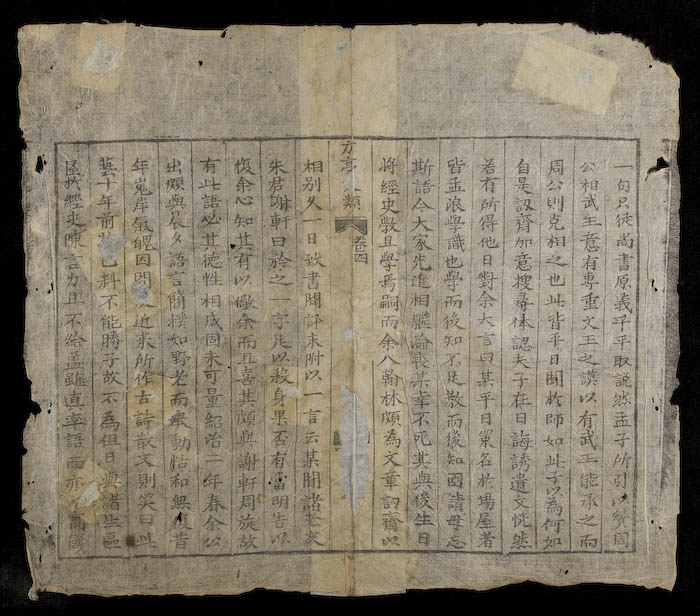 一句只從尚書原義平平取說然孟子所引以贊周
公相武王意有專重文王之謨以有武王能承之而
周公則克相之也此皆平日聞於師如此子以為何如
自是訒齋加意搜尋体認夫子在日誨誘遺文恍然
若有所得他日對余大言曰某平日策名於場屋者
皆孟浪學識也學而後知不足教而後知困請毋忘
斯語今大家先進相繼淪喪某幸不死其與後生日
將經史教且學焉嗣而余入翰林頗為文章訒齋以
方亭 類
卷四
相別久一日致書聞訃末附以一言云某聞諸老友
朱君謝軒曰於之一字足以殺身果否有當明告以
復余心知其有以儆余而且喜其頗與謝軒周旋故
有此語必其德性相成固未可量紹治一年春余公
出頗與晨夕語言簡樸如野老而舉動恬和無復昔
年嵬岸氣魄因問 近來所作古詩散文則笑曰此
藝十年前 已料不能勝子故不為但日與諸生區
區於經史陳言力且不給蓋雖直率語而亦